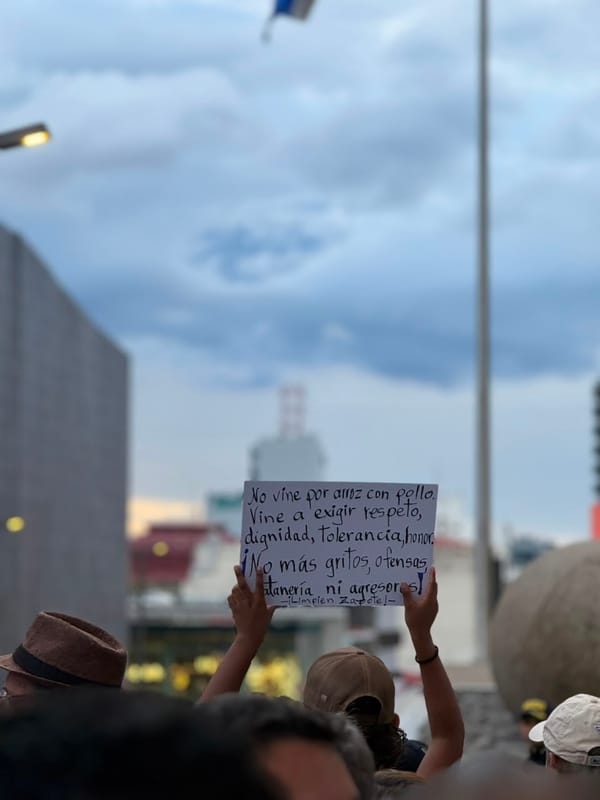 No vine por arroz con pollo.
Vine a exigir respeto,
dignidad, tolerancia, honor.
¡No más gritos, ofensas
ni agresores!
¡Limpien Zapote!